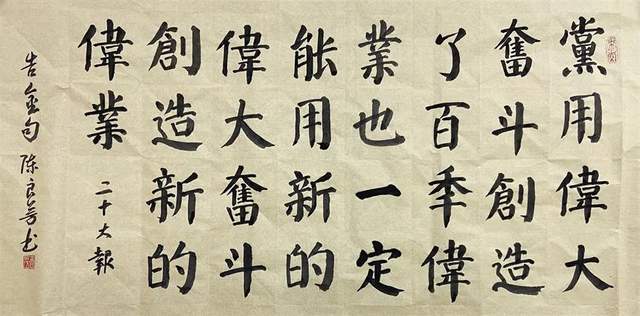 黨用偉大
奮斗創造
了百季偉
業也一定
能用新的
偉大奮斗
創造新的
偉業 二十大報
告金句 陈良善书